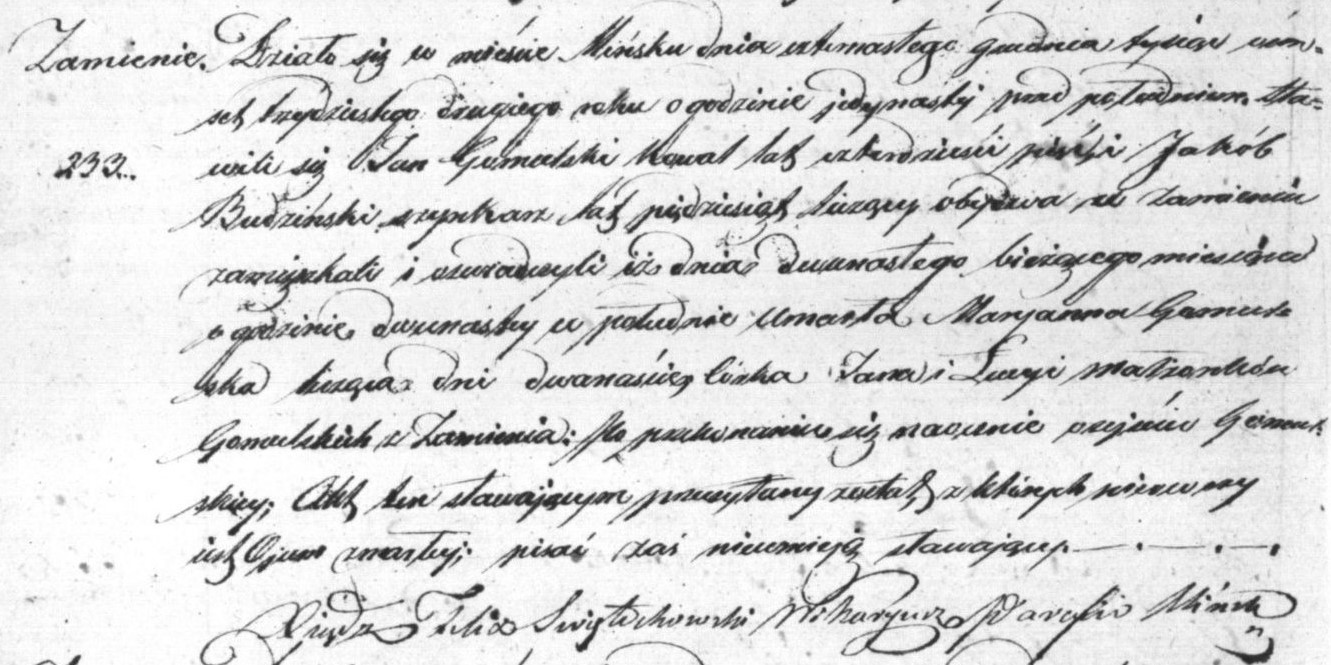 Zamienie. Działo się w mieście Mińsku dnia czternastego Grudnia tysiąc osm-
set trzydziestego drugiego roku o godzinie jedynastéj przed południem. Sta-
233. wili się Jan Gomulski kowal lat czterdzieści i Jakób
Budziński szynkarz lat pięćdziesiąt liczący obydwa w Zamieniu
zamieszkali i oswiadczyli iż dnia dwunastego bieżącego miesiąca
o godzinie dwunastey w południe umarła Maryanna Gomul-
ska licząca dni dwanaście, córka Jana i Łucyi małżonków
Gomulskich z Zamienia; Po przekonaniu się naocznie o zejściu Gomul-
skiey; Akt ten stawającym przeczytany został, z których pierwszy
jest Oycem zmarłej; pisać zaś nieumieją stawający.
Xiądz Felix Swiętochowski Wikaryusz Parafii Mińsk